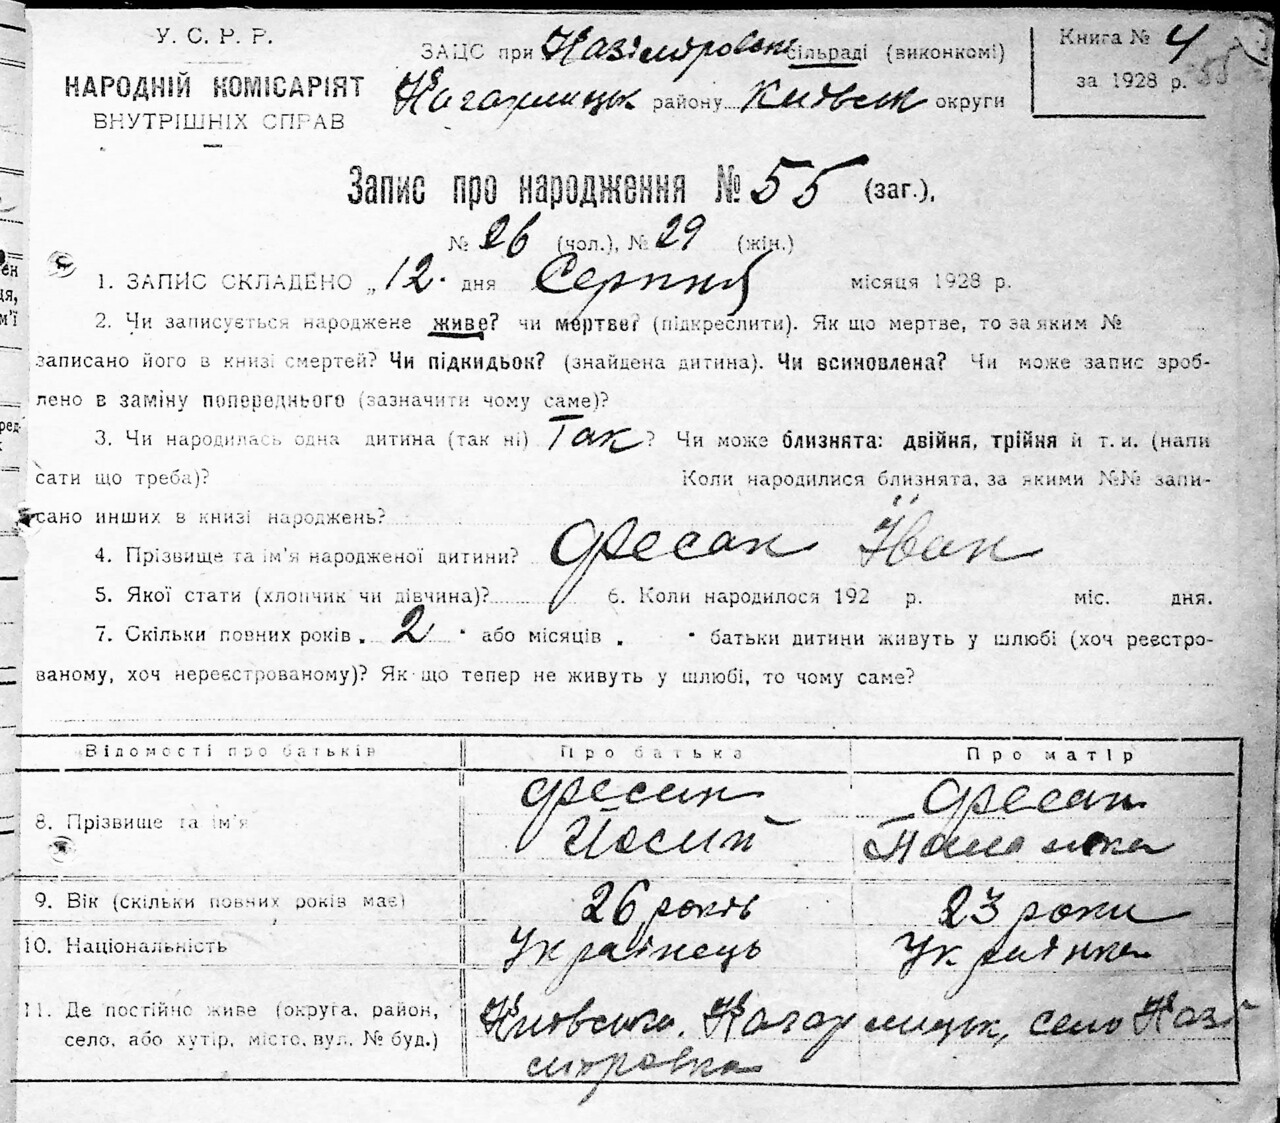 У. С. Р. Р.
НАРОДНІЙ КОМІСАРІЯТ
ВНУТРІШНІХ СПРАВ
ЗАЦС при Казіміровськ сільраді (виконкомі)
Кагарлицьк району Київськ округи
Книга № 4
за 1928 р. 55
Запис про народження № 55 (заг.),
№ 26 (чол.), № 29 (жін.)
1. ЗАПИС СКЛАДЕНО „12" дня Серпня місяця 1928 р.
2. Чи записується народжене живе? чи мертве? (підкреслити). Як що мертве, то за яким №
записано його в книзі смертей? Чи підкидьок? (знайдена дитина). Чи всиновлена? Чи може запис зроб-
лено в заміну попереднього (зазначити чому саме)?
3. Чи народилась одна дитина (так ні) Так? Чи може близнята: двійня, трійня й т. и. (напи
сати що треба)? Коли народилися близнята, за якими №№ запи-
сано инших в книзі народжень?
4. Прізвище та ім'я народженої дитини? Фесан Іван
5. Якої стати (хлопчик чи дівчина)? 6. Коли народилося 192 р. міс. дня.
7. Скільки повних років 2 або місяців батьки дитини живуть у шлюбі (хоч реєстро-
ваному, хоч нереєстрованому)? Як що тепер не живуть у шлюбі, то чому саме?
Відомості про батьків Про батька Про матір
8. Прізвище та ім'я
Фесан Фесан
Йосип Паламка
9. Вік (скільки повних років має) 26 років 23 роки
10. Національність Українець Українка
11. Де постійно живе (округа, район,
село, або хутір, місто, вул. № буд.)
Київська, Кагарлицьк, село Казі
міровка